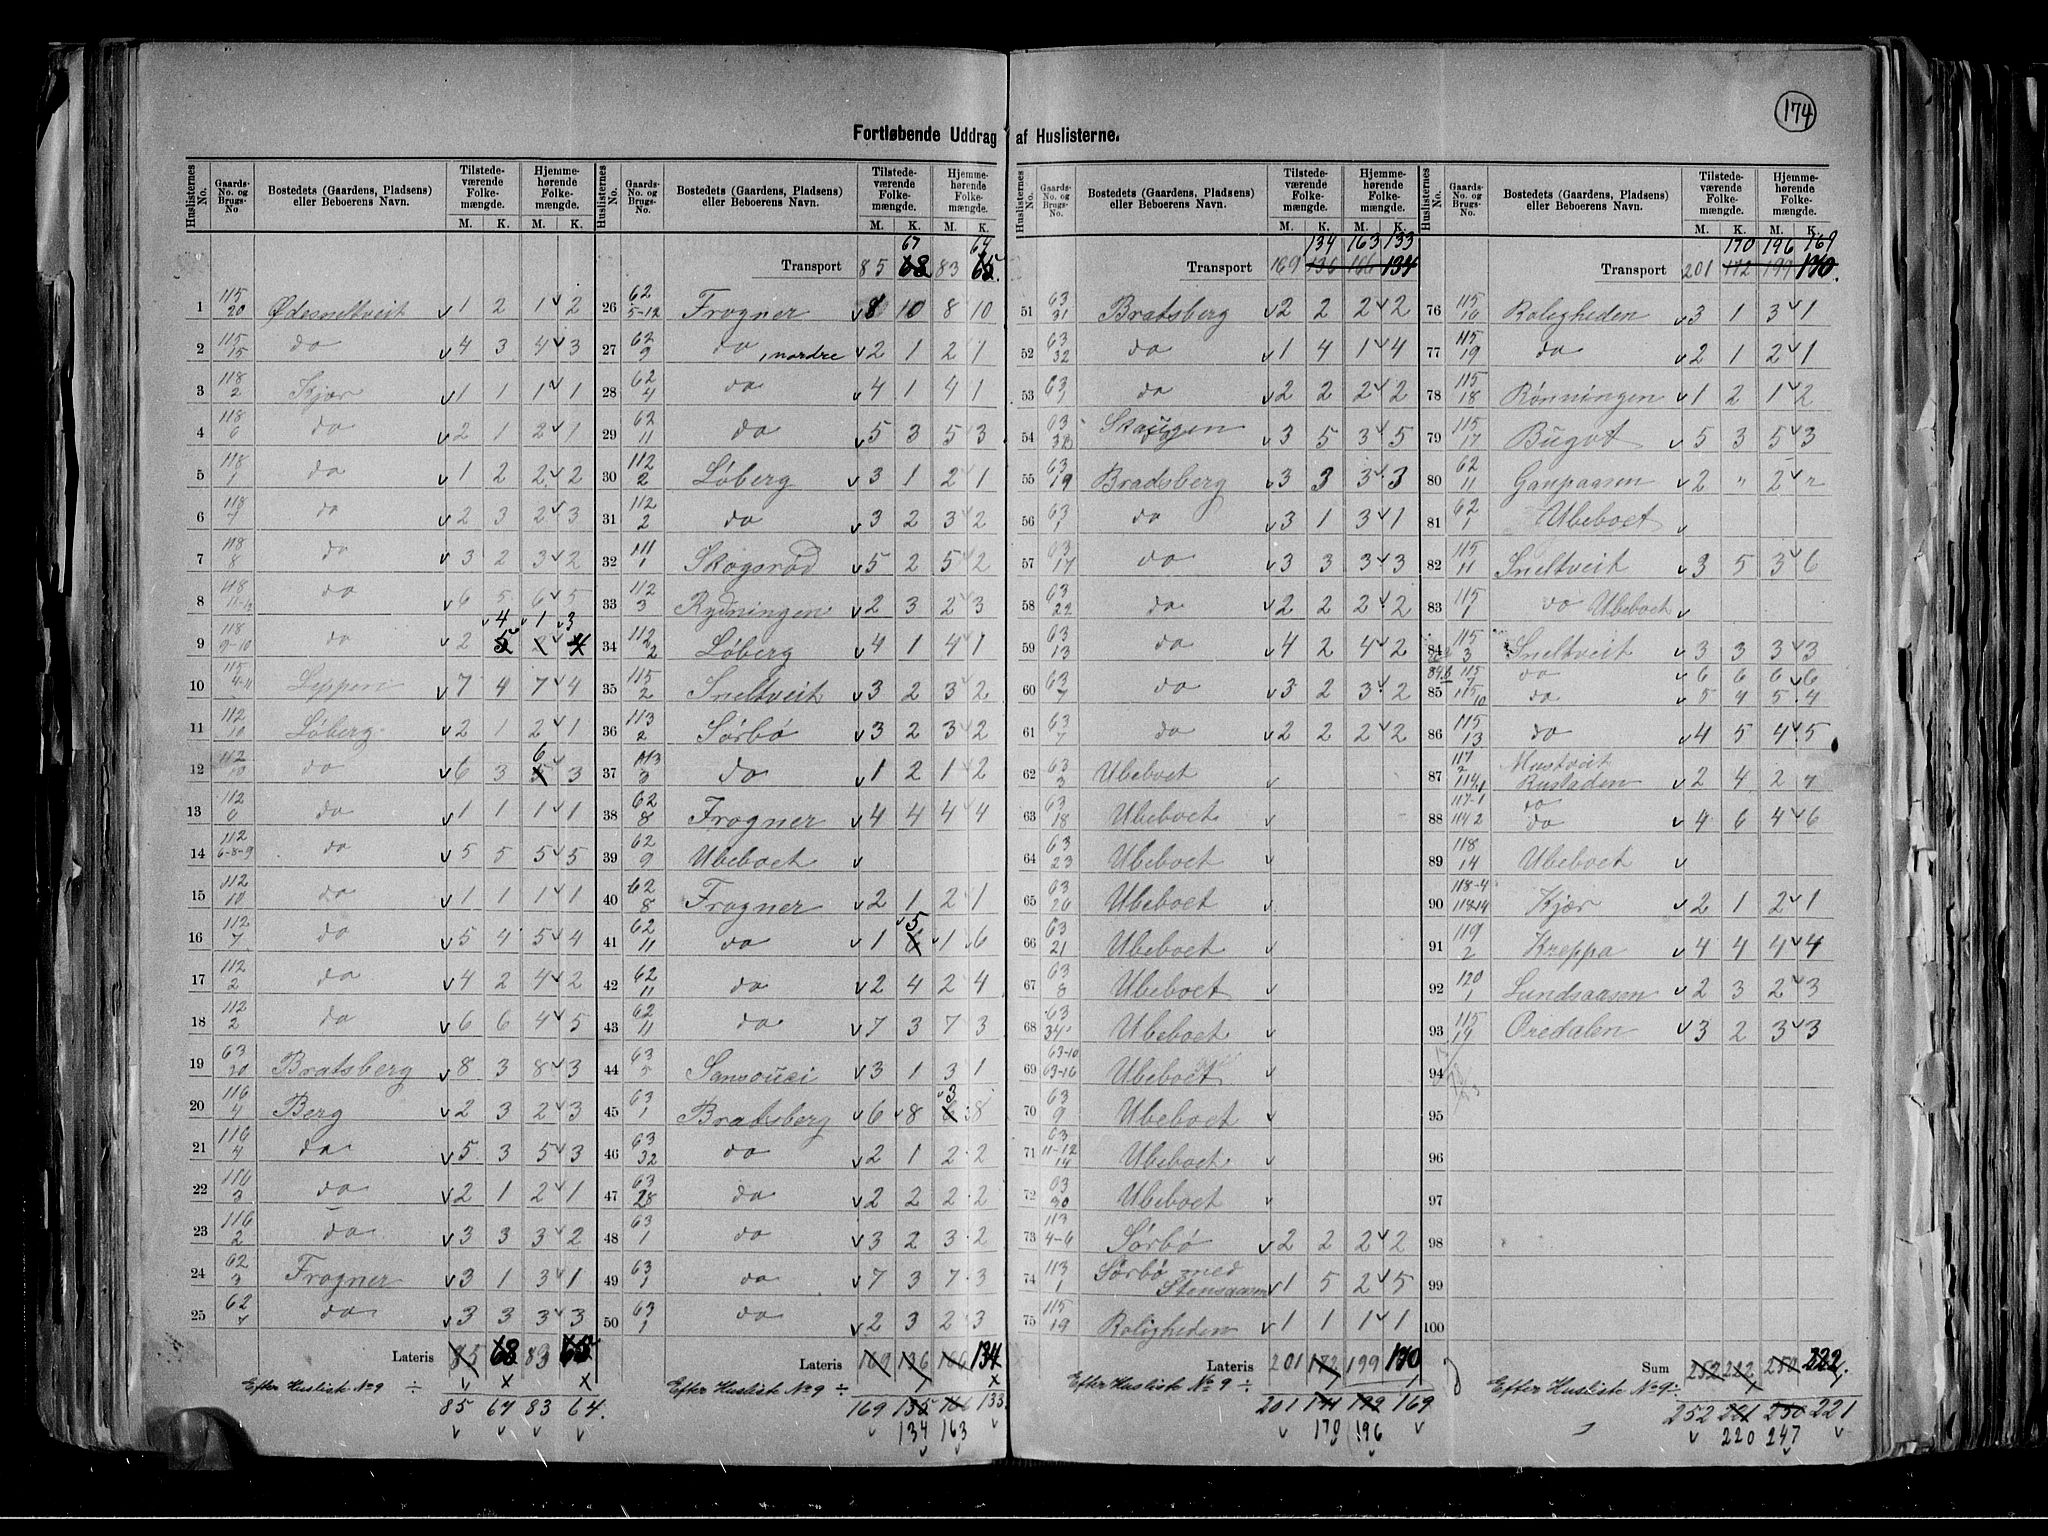 174
Fortløbende Uddrag af Huslisterne.
Huslisternes No. Gaards-No. og Brugs-No Bostedets (Gaardens, Pladsens) eller Beboerens Navn. Tilstedeværende Folkemængde. M. K. Hjemmehørende Folkemængde. M. K.
1 115/20 Ødesneltveit 1 2 1 2
2 115/15 do 4 3 4 3
3 118/2 Kjær 1 1 1 1
4 118/6 do 2 1 2 1
5 118/1 do 1 2 2 2
6 118/7 do 2 3 2 3
7 118/8 do 3 2 3 2
8 118/11-12 do 6 5 6 5
4 1 3
9 118/9-10 do 2 5 2 4
10 115/4-11 Leppen 7 4 7 4
11 112/10 Løberg 2 1 2 1
6
12 112/10 do 6 3 5 3
13 112/6 do 1 1 1 1
14 112/6-8-9 do 5 5 5 5
15 112/10 do 1 1 1 1
16 112/7 do 5 4 5 4
17 112/2 do 4 2 4 2
18 112/2 do 6 6 4 5
19 63/20 Bratsberg 8 3 8 3
20 116/4 Berg 2 3 2 3
21 116/4 do 5 3 5 3
22 116/3 do 2 1 2 1
23 116/2 do 3 3 3 2
24 62/3 Frogner 3 1 3 1
25 62/7 do 3 3 3 3
Lateris 85 68 83 65
Efter Husliste No 9 ÷
85 67 83 64.
Huslisternes No. Gaards-No. og Brugs-No. Bostedets (Gaardens, Pladsens) eller Beboerens Navn. Tilstedeværende Folkemængde. M. K. Hjemmehørende Folkemængde. M. K.
67 64
Transport 85 68 83 65
26 62/5-12 Frogner 8 10 8 10
27 62/9 do, nordre 2 1 2 1
28 62/4 do 4 1 4 1
29 62/11 do 5 3 5 3
30 112/2 Løberg 3 1 2 1
31 112/2 do 3 2 3 2
32 111/1 Skogsrød 5 2 5 2
33 112/3 Rydningen 2 3 2 3
34 112/2 Løberg 4 1 4 1
35 115/2 Sneltveit 3 2 3 2
36 113/2 Sørbø 3 2 3 2
37 113/3 do 1 2 1 2
38 62/8 Frogner 4 4 4 4
39 62/9 Ubeboet
40 62/8 Frogner 2 1 2 1
5
41 62/11 do 1 6 1 6
42 62/11 do 2 4 2 4
43 62/11 do 7 3 7 3
44 63/5 Sansouci 3 1 3 1
3
45 63/1 Bratsberg 6 8 6 8
46 63/32 do 2 1 2 2
47 63/28 do 2 2 2 2
48 63/1 do 3 2 3 2
49 63/1 do 7 3 7 3
50 63/1 do 2 3 2 3
Lateris 169 136 166 134
Efter Husliste No 9 ÷
169 135 166 133
134 163
Huslisternes No. Gaards-No. og Brugs-No. Bostedets (Gaardens, Pladsens) eller Beboerens Navn. Tilstedeværende Folkemængde. M. K. Hjemmehørende Folkemængde. M. K.
134 163 133
Transport 169 136 166 134
51 63/31 Bratsberg 2 2 2 2
52 63/32 do 1 4 1 4
53 63/1 do 2 2 2 2
54 63/38 Skaugen 3 5 3 5
55 63/19 Bradsberg 3 3 3 3
56 63/1 do 3 1 3 1
57 63/17 do 3 3 3 3
58 63/22 do 2 2 2 2
59 63/13 do 4 2 4 2
60 63/7 do 3 2 3 2
61 63/7 do 2 2 2 2
62 63/3 Ubeboet
63 63/18 Ubeboet
64 63/23 Ubeboet
65 63/26 Ubeboet
66 63/21 Ubeboet
67 63/8 Ubeboet
68 63/34 Ubeboet
69 63-10 63-16 Ubeboet
70 63/9 Ubeboet
71 63/11-12 14 Ubeboet
72 63/30 Ubeboet
73 113/4-6 Sørbø 2 2 2 2
74 113/1 Sørbø med Stensaasen 1 5 2 5
75 115/19 Roligheden 1 1 1 1
Lateris 201 172 199 170
Efter Husliste No 9 ÷
201 171 199 169
170 196
Huslisternes No. Gaards-No. og Brugs-No. Bostedets (Gaardens, Pladsens) eller Beboerens Navn. Tilstedeværende Folkemængde. M. K. Hjemmehørende Folkemængde. M. K.
170 196 169
Transport 201 172 199 170
76 115/16 Roligheden 3 1 3 1
77 115/19 do 2 1 2 1
78 115/18 Rønningen 1 2 1 2
79 115/17 Bugot 5 3 5 3
80 62/11 Gaupaasen 2 " 2 "
81 62/1 Ubeboet
82 115/11 Sneltveit 3 5 3 6
83 115/1 do Ubeboet
84 115/3 Sneltveit 3 3 3 3
84b 115/7 do 6 6 6 6
85 115/10 do 5 4 5 4
86 115/13 do 4 5 4 5
87 117/2 114,1 Mustveit Rustaden 2 4 2 4
117-1 do
88 114 2 do 4 6 4 6
89 118/14 Ubeboet
90 118-4 118-14 Kjær 2 1 2 1
91 119/2 Kreppa 4 4 4 4
92 120/1 Lundsaasen 2 3 2 3
93 115/14 Oredalen 3 2 3 3
94
95
96
97
98
99
100
Sum 252 222 250 222
Efter Husliste No 9 ÷
252 221 250 221
220 247